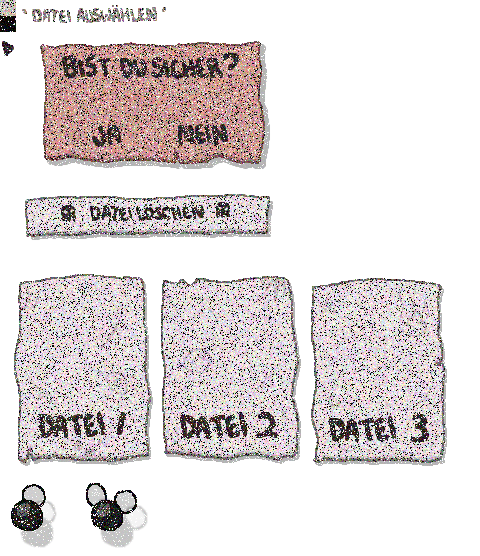 " DATEI AUSWÄHLEN "
BIST DU SICHER?
JA NEIN
DATEI LÖSCHEN
DATEI 1 DATEI 2 DATEI 3